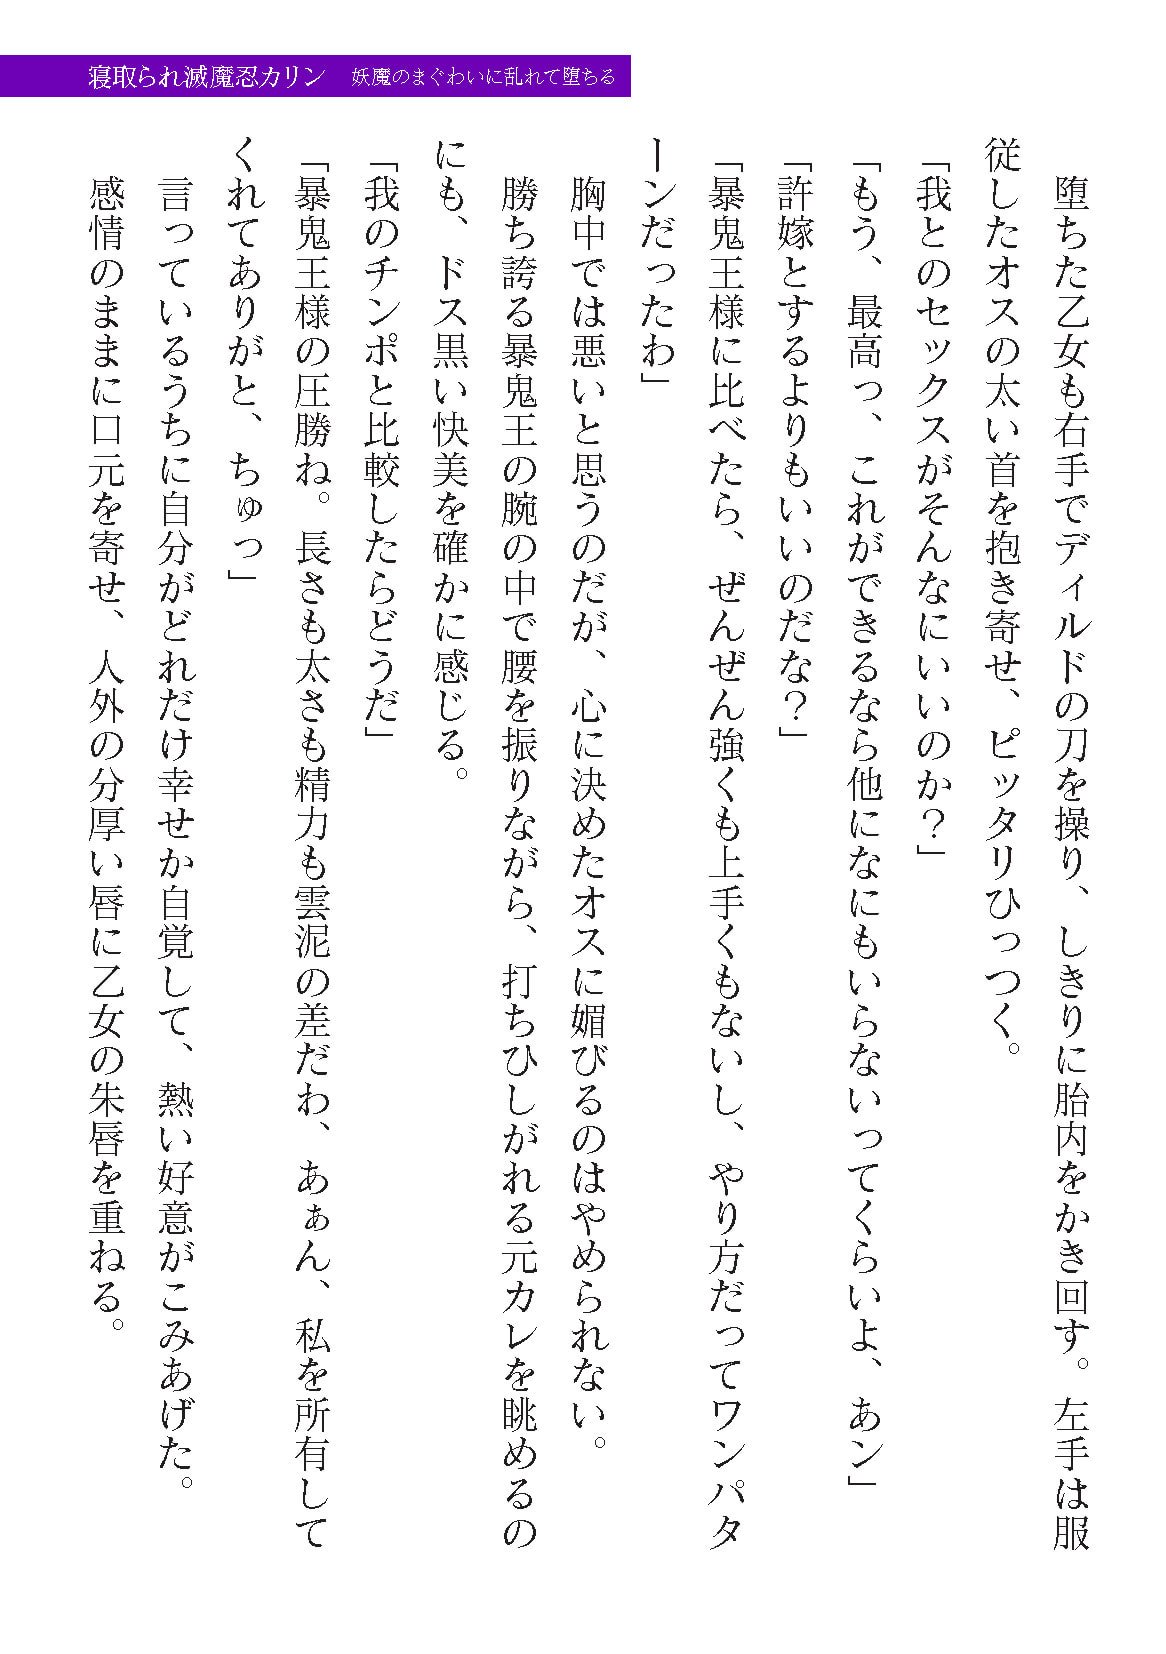 寝取られ滅魔忍カリン　妖魔のまぐわいに乱れて堕ちる
　堕ちた乙女も右手でディルドの刀を操り、しきりに胎内をかき回す。左手は服
従したオスの太い首を抱き寄せ、ピッタリひっつく。
「我とのセックスがそんなにいいのか？」
「もう、最高っ、これができるなら他になにもいらないってくらいよ、あン」
「許嫁とするよりもいいのだな？」
「暴鬼王様に比べたら、ぜんぜん強くも上手くもないし、やり方だってワンパタ
ーンだったわ」
　胸中では悪いと思うのだが、心に決めたオスに媚びるのはやめられない。
　勝ち誇る暴鬼王の腕の中で腰を振りながら、打ちひしがれる元カレを眺めるの
にも、ドス黒い快美を確かに感じる。
「我のチンポと比較したらどうだ」
「暴鬼王様の圧勝ね。長さも太さも精力も雲泥の差だわ、あぁん、私を所有して
くれてありがと、ちゅっ」
　言っているうちに自分がどれだけ幸せか自覚して、熱い好意がこみあげた。
　感情のままに口元を寄せ、人外の分厚い唇に乙女の朱唇を重ねる。